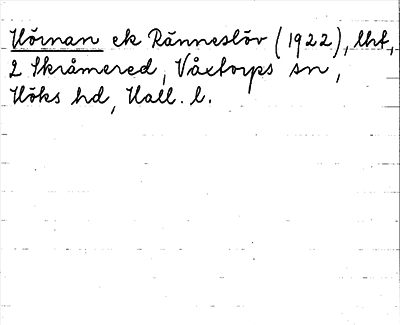 Hörnan ek Ränneslöv (1922), lht,
2 Skråmered, Våxtorps sn,
Höks hd, Hall. l.